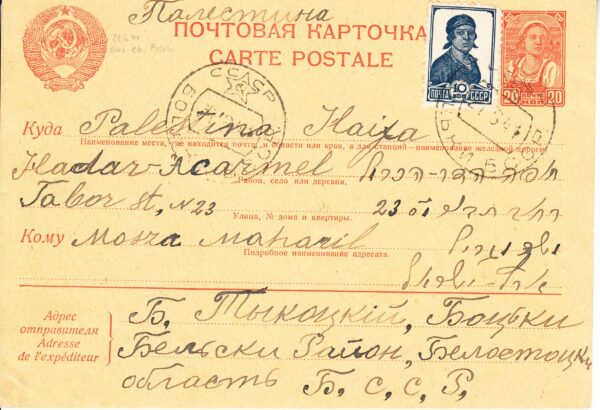 Палестина
ПОЧТОВАЯ КАРТОЧКА
CARTE POSTALE
ПОЧТА 10 КОП СССР
20 20
СССР
Куда Palestina Haifa
Наименование места, где находится почта, и области или края, а для станций—наименование железной дороги
Hadar-Acarmel חיפה הדר-הכרמל
Район, село или деревня.
Tabor st, N 23 23
Улица, № дома и квартиры.
Кому Mosza Maharil
Подробное наименование адресата.
ארץ-ישראל
Адрес отправителя
Adresse de l'expéditeur
Б. Тыкоцкий, Боцьки
Бельски Район, Белостоцки
область Б. С. С. Р.